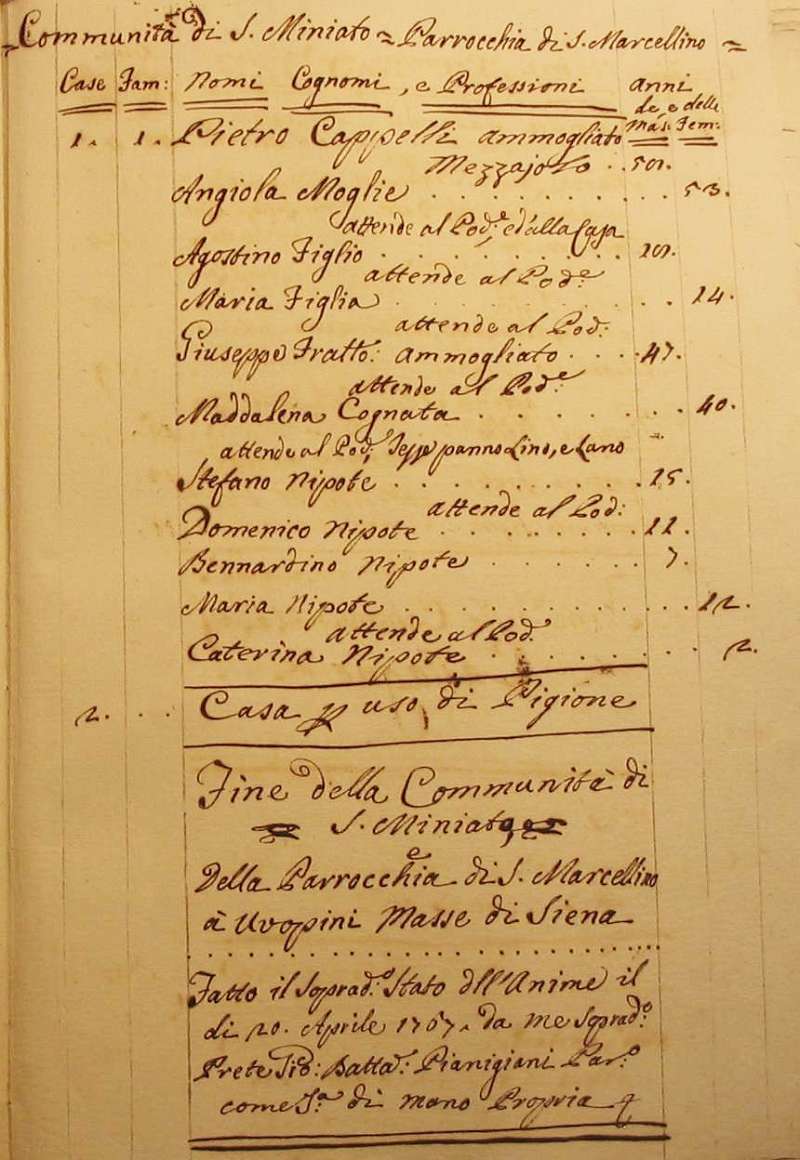 Communità di S. Miniato = Parrocchia di S. Marcellino =
Case Fam: Nomi Cognomi, e Professioni Anni
de, e delle
Mas: Fem:
1. 1. Pietro Cappelli ammogliato
Mezzajolo . .
Angiola Moglie . . . . . . . . . 53.
attende al Pod.e, e d'alla Casa
Agostino Figlio . . . . . . . . .
attende al Pod.e
Maria Figlia . . . . . . . . 14.
attende al Pod:
Giuseppe Fratto: ammogliato . . . 47.
attende al Pod.e
Maddalena Cognata . . . . . . . . 40.
attende al Pod: Tesse panno Lino, e Lano
Stefano Nipote . . . . . . . . . 15.
attende al Pod:
Domenico Nipote . . . . . . . 11.
Bennardino Nipote . . . . . . 7.
Maria Nipote . . . . . . . . . . . 12.
attende al Pod.
Caterina Nipote . . . . . . . . 2.
2. . . Casa p uso di Pigione
Fine della Communità di
S. Miniato
e
Della Parrocchia di S. Marcellino
à Uvopini Masse di Siena
Fatto il Soprad.o Stato dll'Anime il
di 20. Aprile 1767. da me Soprad.o
Prete Gio: Batta: Pianigiani Par.o
come S.a di mano Propria